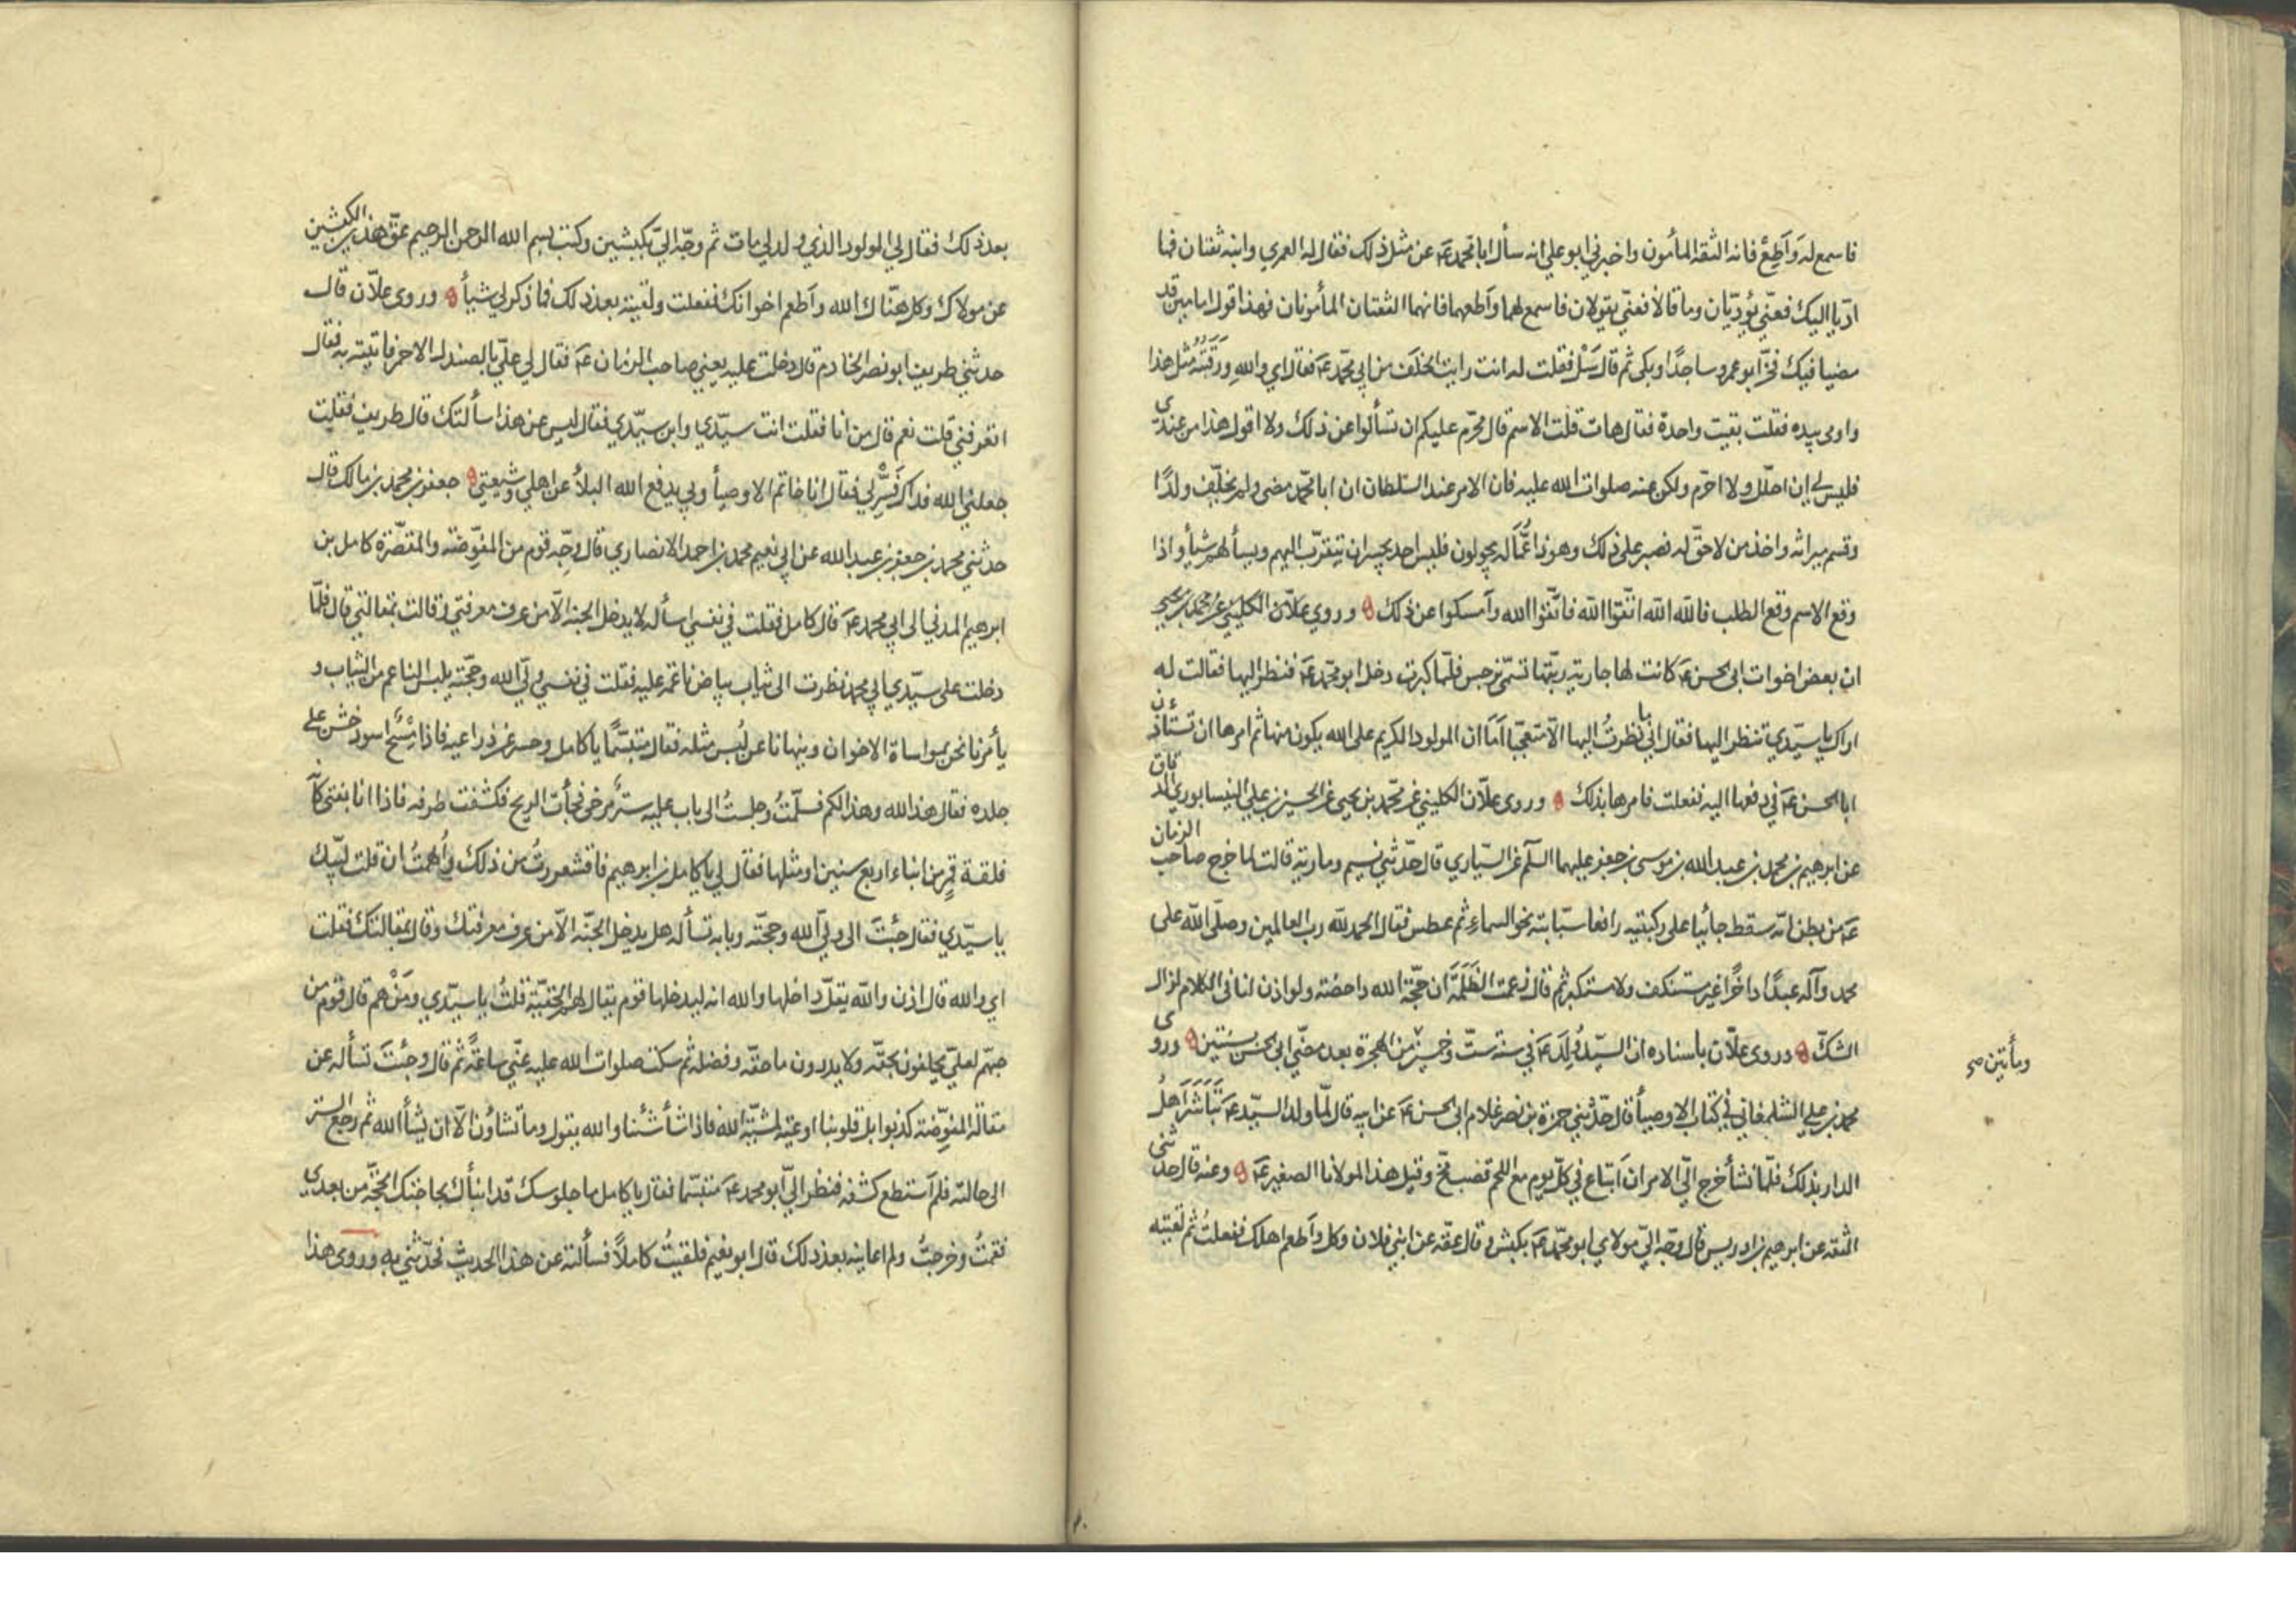 فاسمع له وَاَطِعْ فانه الثقة المأمون واخبرني ابو علي انه سأل ابا محمد عَ عن مثل ذلك فقال له العمري وابنه ثقتان فما
ادّيا اليك فعنّي يؤدّيان وما قالا فعنّي يقولان فاسمع لهما وَاَطعهما فانهما الثقتان المأمونان فهذا قول امامين قد
مضيا فيك فخرّ ابو عمرو ساجدًا وبكى ثم قال سَلْ فقلت له انت رايت الخلَف من ابي محمّد عَ فقال اي والله ورَقَبَتُه مثل هذا
واومى بيده فقلت بقيت واحدة فقال هات قلت الاسم قال محرّم عليكم ان تسألوا عن ذلك ولا اقول هذا من عندي
فليس لي ان احلّل ولا احرّم ولكن عنه صلوات الله عليه فان الامر عند السّلطان ان ابا محمّد مضى ولم يخلّف ولدًا
وقسم ميراثه واخذ من لا حقّ له فصبر على ذلك وهوذا عُمّاله يجولون فليس احد يجسر ان يتقرّب اليهم ويسألهم شيأ واذا
وقع الاسم وقع الطلب فالله الله اتّقوا الله فاتّقوا الله وَاَمسكوا عن ذلك ه وروي علّان الكليني عن محمد بن يحيى
ان بعض اخوات ابي الحسن عَ كانت لها جارية ربّتها تسمّى نرجس فلمّا كبرت دخل ابو محمّد عَ فنظر اليها فقالت له
اراك يا سيّدي تنظر اليها فقال اني ما نظرتُ اليها الّا متعجّبا اَمَا ان المولود الكريم على الله يكون منها ثم امرها ان تستأذن
ابا الحسن عَ في دفعها اليه ففعلت فامرها بذلك ه وروى علّان الكليني عن محمّد بن يحيى عن الحسين بن علي النيسابوري الدقاق
عن ابرهيم بن محمد بن عبد الله بن موسى بن جعفر عليهما السّلم عن السّياري قال حدّثني نسيم ومارية قالت لما خرج صاحب الزمان
عَ من بطن امّه سقط جاثيا على ركبتيه رافعا سبّابته نحو السماء ثم عطس فقال الحمد لله رب العالمين وصلّى الله على
محمد وآله عبدًا داخرًا غير مستنكف ولا مستكبر ثم قال زعمت الظَلَمَة ان حجّة الله داحضة ولو اذن لنا في الكلام لزال
الشكّ ه وروى علّان باسناده ان السيّد وُلِدَ عَ في سنة ستّ وخمسين من الهجرة بعد مضيّ ابي الحسن بسنتين ه وروى
ومأتين صح
محمد بن علي الشلمغاني في كتاب الاوصيأ قال حدّثني حمزة بن نصر غلام ابي الحسن عَ عن ابيه قال لمّا ولد السيّد عَ تَبَاشَرَ اَهلُ
الدار بذلك فلمّا نشأ خرج اليّ الامر ان اَبتاع في كلّ يوم مع اللحم قصب مخّ وقيل هذا لمولانا الصغير عَ ه وعنه قال حدثني
الثقه عن ابرهيم بن ادريس قال وجّه اليّ مولاي ابو محمّد عَ بكبش وقال عقّه عن ابني فلان وكل وَاَطعم اهلك ففعلتُ ثم لقيته
بعد ذلك فقال لي المولود الذي ولد لي مات ثم وجّه اليّ بكبشين وكتب بسم الله الرحمن الرحيم عقّ هذين الكبشين
عن مولاك وكل هنّاك الله وَاَطعم اخوانك ففعلت ولقيته بعد ذلك فما ذكر لي شيأً ه وروى علّان قال
حدثني طريف ابو نصر الخادم قال دخلت عليه يعني صاحب الزمان عَ فقال لي عليّ بالصندل الاحمر فاتيته به فقال
اتعرفني قلت نعم قال من انا فقلت انت سيّدي وابن سيّدي فقال ليس عن هذا سألتك قال طريف فقلت
جعلني الله فداك فَسِّرْ لي فقال انا خاتم الاوصيأ وبي يدفع الله البلأ عن اهلي وشيعتي ه جعفر بن محمد بن مالك قال
حدثني محمد بن جعفر بن عبد الله عن ابي نعيم محمد بن احمد الانصاري قال وجّه قوم من المفوّضة والمقصّرة كامل بن
ابرهيم المدني الى ابي محمد عَ قال كامل فقلت في نفسي اسأله لا يدخل الجنة الّا من عرف معرفتي وقالت بمقالتي قال فلمّا
دخلت على سيّدي ابي محمد نظرت الى ثياب بياض ناعمة عليه فقلت في نفسي وليّ الله وحجّته يلبس الناعم من الثياب و
يأمرنا نحن بمواساة الاخوان وينهانا عن لُبس مثله فقال متبسّمًا يا كامل وحسر عن ذراعيه فاذا مِسْحٌ اسود خشن على
جلده فقال هذا لله وهذا لكم فسلّمتُ وجلستُ الى باب عليه سترٌ مرخى فجأت الريح فكشفت طرفه فاذا انا بفتى كأنّه
فلقة قمرٍ من ابناء اربع سنين او مثلها فقال لي يا كامل بن ابرهيم فاقشعررتُ من ذلك وأُلهمتُ ان قلت لبّيك
يا سيّدي فقال جئتَ الى وليّ الله وحجّته وبابه تسأله هل يدخل الجنّة الّا من عرف معرفتك وقال بمقالتك فقلت
اي والله قال اذن والله يقلّ داخلها والله انه ليدخلها قوم يقال لهم الحقّيّة قلتُ يا سيّدي ومَنْ هم قال قوم من
حبّهم لعليّ يحلفون بحقّه ولا يدرون ما حقّه وفضله ثم سكت صلوات الله عليه عنّي ساعةً ثم قال وجئتَ تسأله عن
مقالة المفوِّضة كذبوا بل قلوبنا اوعية لمشيّة الله فاذا شأ شئنا والله يقول وما تشاؤن الّا ان يشأ الله ثم رجع الستر
الى حالته فلم اَستطع كشفه فنظر اليّ ابو محمد عَ متبسّما فقال يا كامل ما جلوسك قد انبأك بحاجتك الحجّة من بعدي
فقمتُ وخرجتُ ولم اعاينه بعد ذلك قال ابو نعيم فلقيتُ كاملاً فسألته عن هذا الحديث فحدّثني به وروى هذا